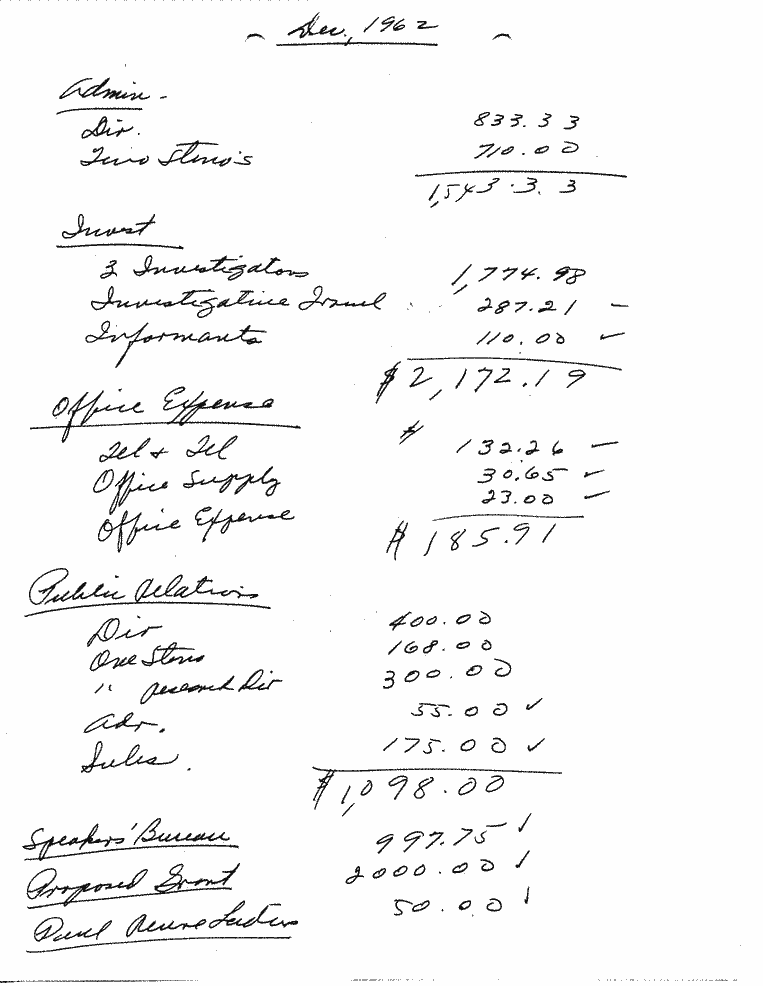 Dec., 1962
Admin -
Dir. 833.33
Two Steno's 710.00
1,543.33
Invest
3 Investigators 1,774.98
Investigative Travel 287.21 —
Informants 110.00 ✓
$2,172.19
Office Expense
Tel & Tel $ 132.26 —
Office Supply 30.65 ✓
Office Expense 23.00 ✓
$185.91
Public Relations
Dir 400.00
One Steno 168.00
" Research Dir 300.00
Adv. 55.00 ✓
Subs. 175.00 ✓
$1,098.00
Speakers' Bureau 997.75 ✓
Proposed Grant 2000.00 ✓
Paul 50.00 ✓